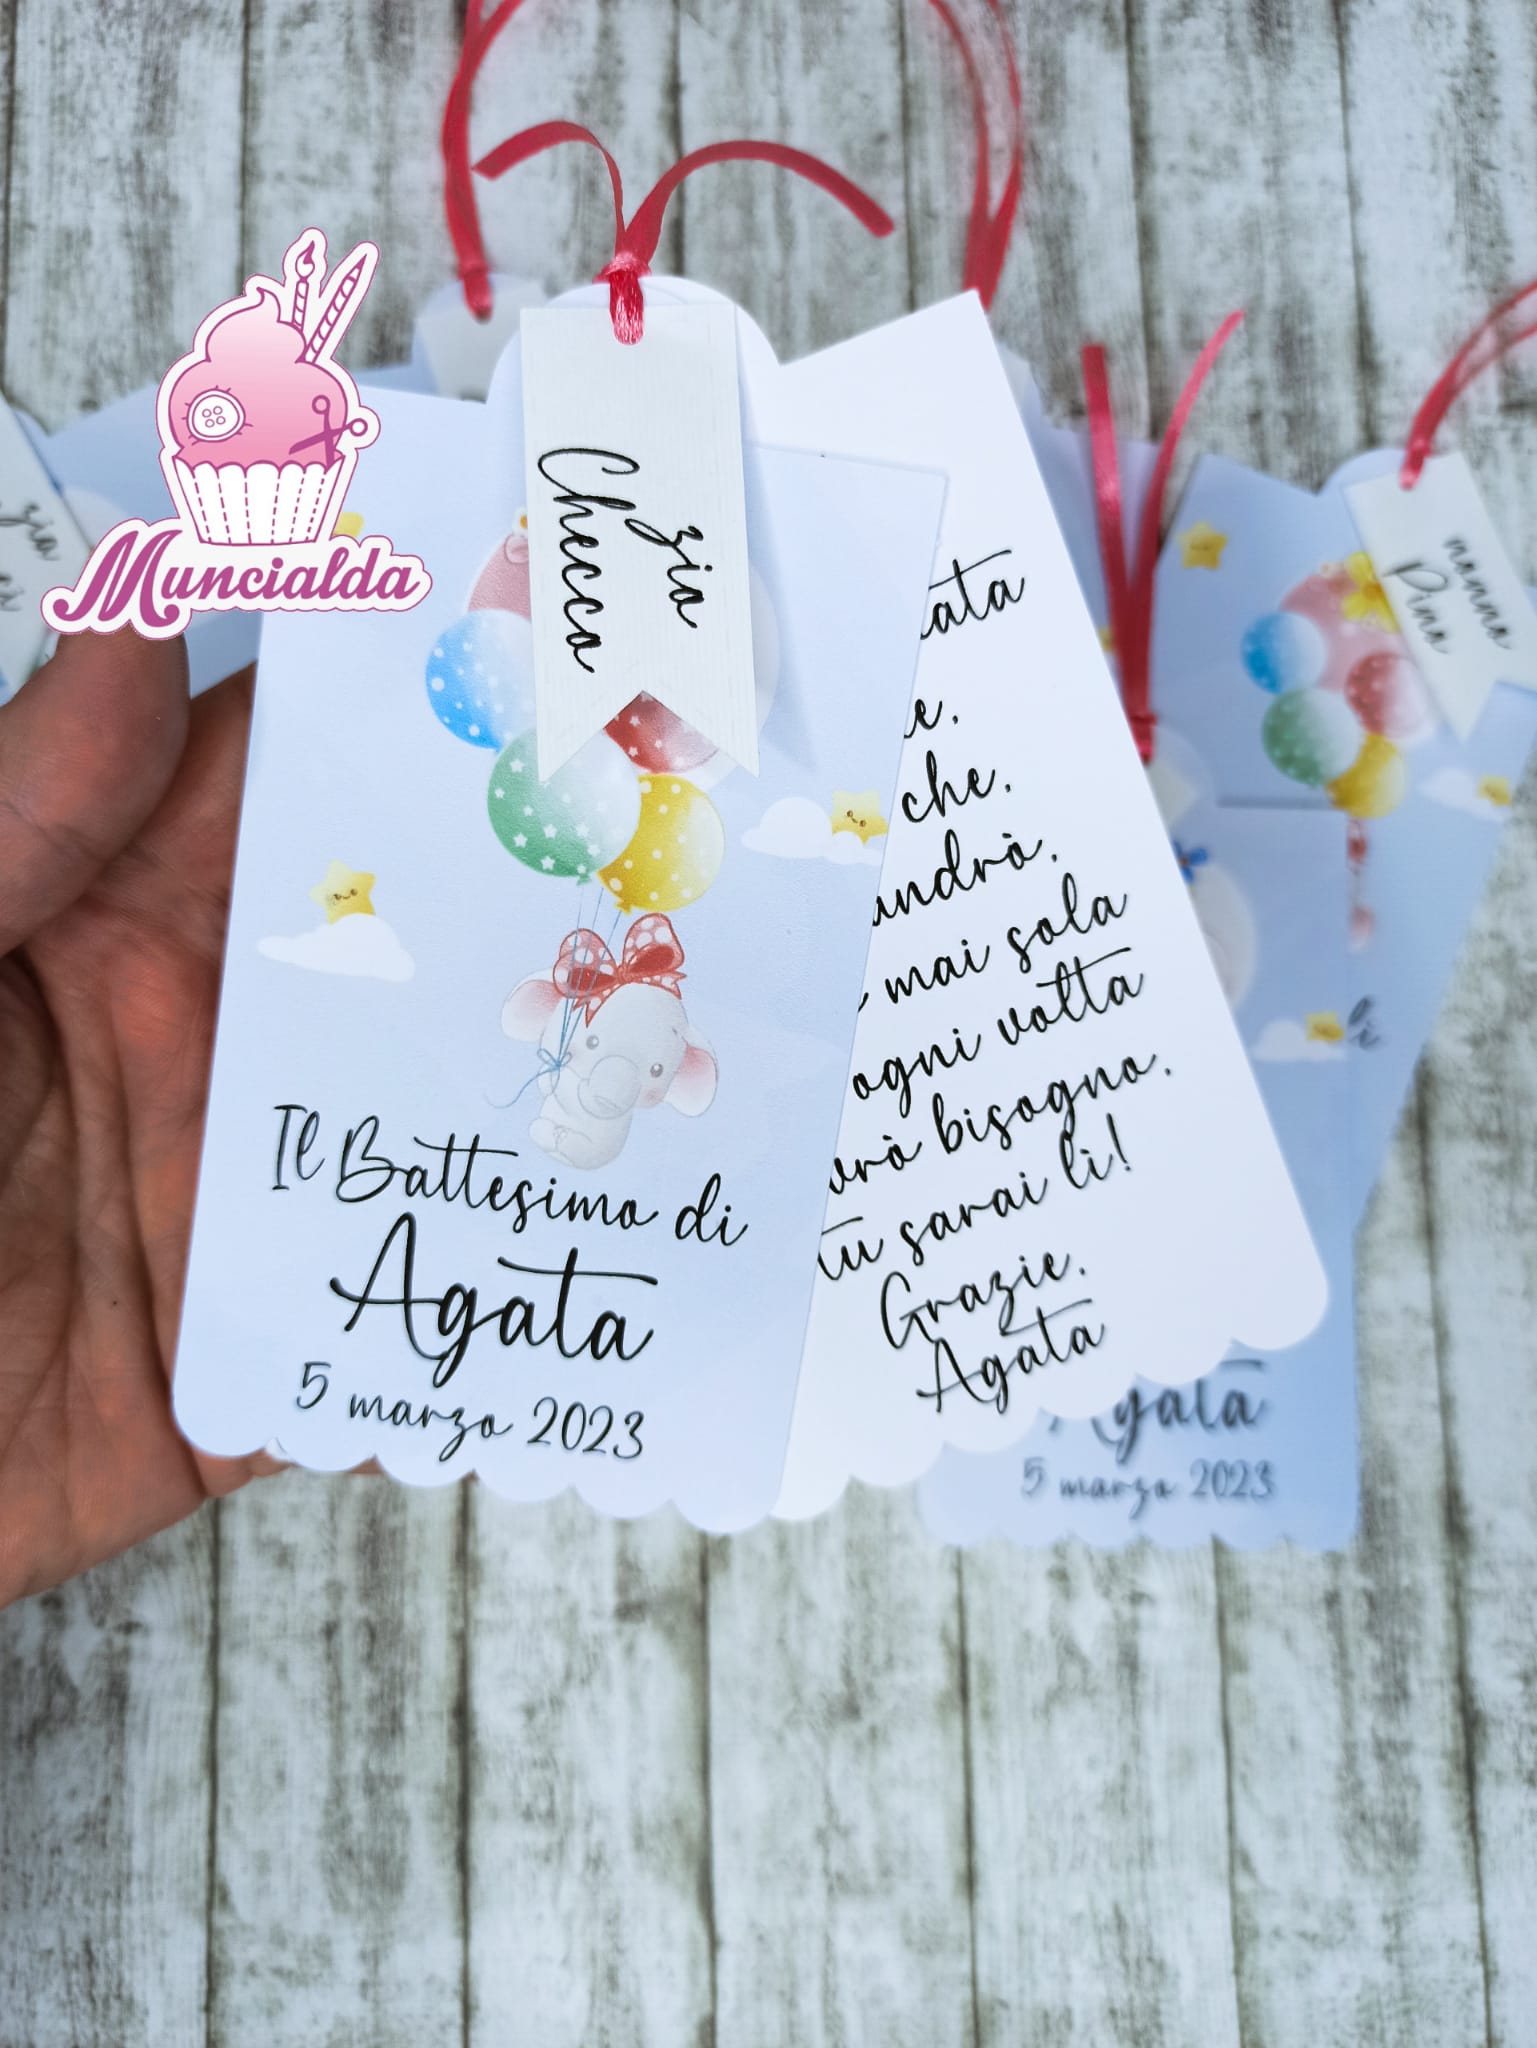 Muncialda
zio
Checco
Il Battesimo di
Agata
5 marzo 2023
che.
mai sola
ogni volta
bisogno.
tu sarai lì!
Grazie.
Agata
nonno
Pino
Agata
5 marzo 2023
zia